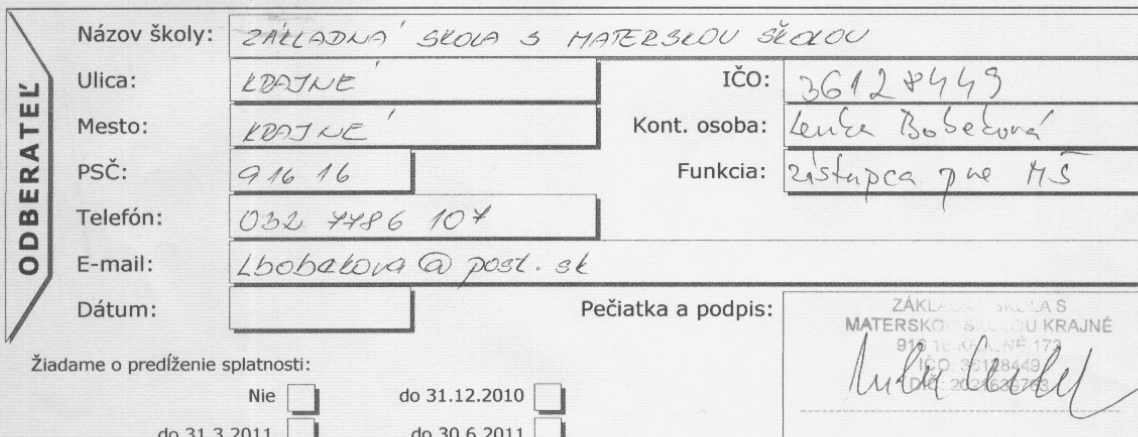 Názov školy: ZÁKLADNÁ ŠKOLA S MATERSKOU ŠKOLOU
Ulica: KRAJNÉ IČO: 36128449
Mesto: KRAJNÉ Kont. osoba: Lenka Bobeková
PSČ: 916 16 Funkcia: zástupca pre MŠ
Telefón: 032 7786 107
E-mail: Lbobekova@post.sk
Dátum: Pečiatka a podpis:
ODBERATEĽ
ZÁKLADNÁ ŠKOLA S
MATERSKOU ŠKOLOU KRAJNÉ
916 16 KRAJNÉ 173
IČO: 36128449
DIČ:
Žiadame o predĺženie splatnosti:
Nie do 31.12.2010
do 31.3.2011 do 30.6.2011